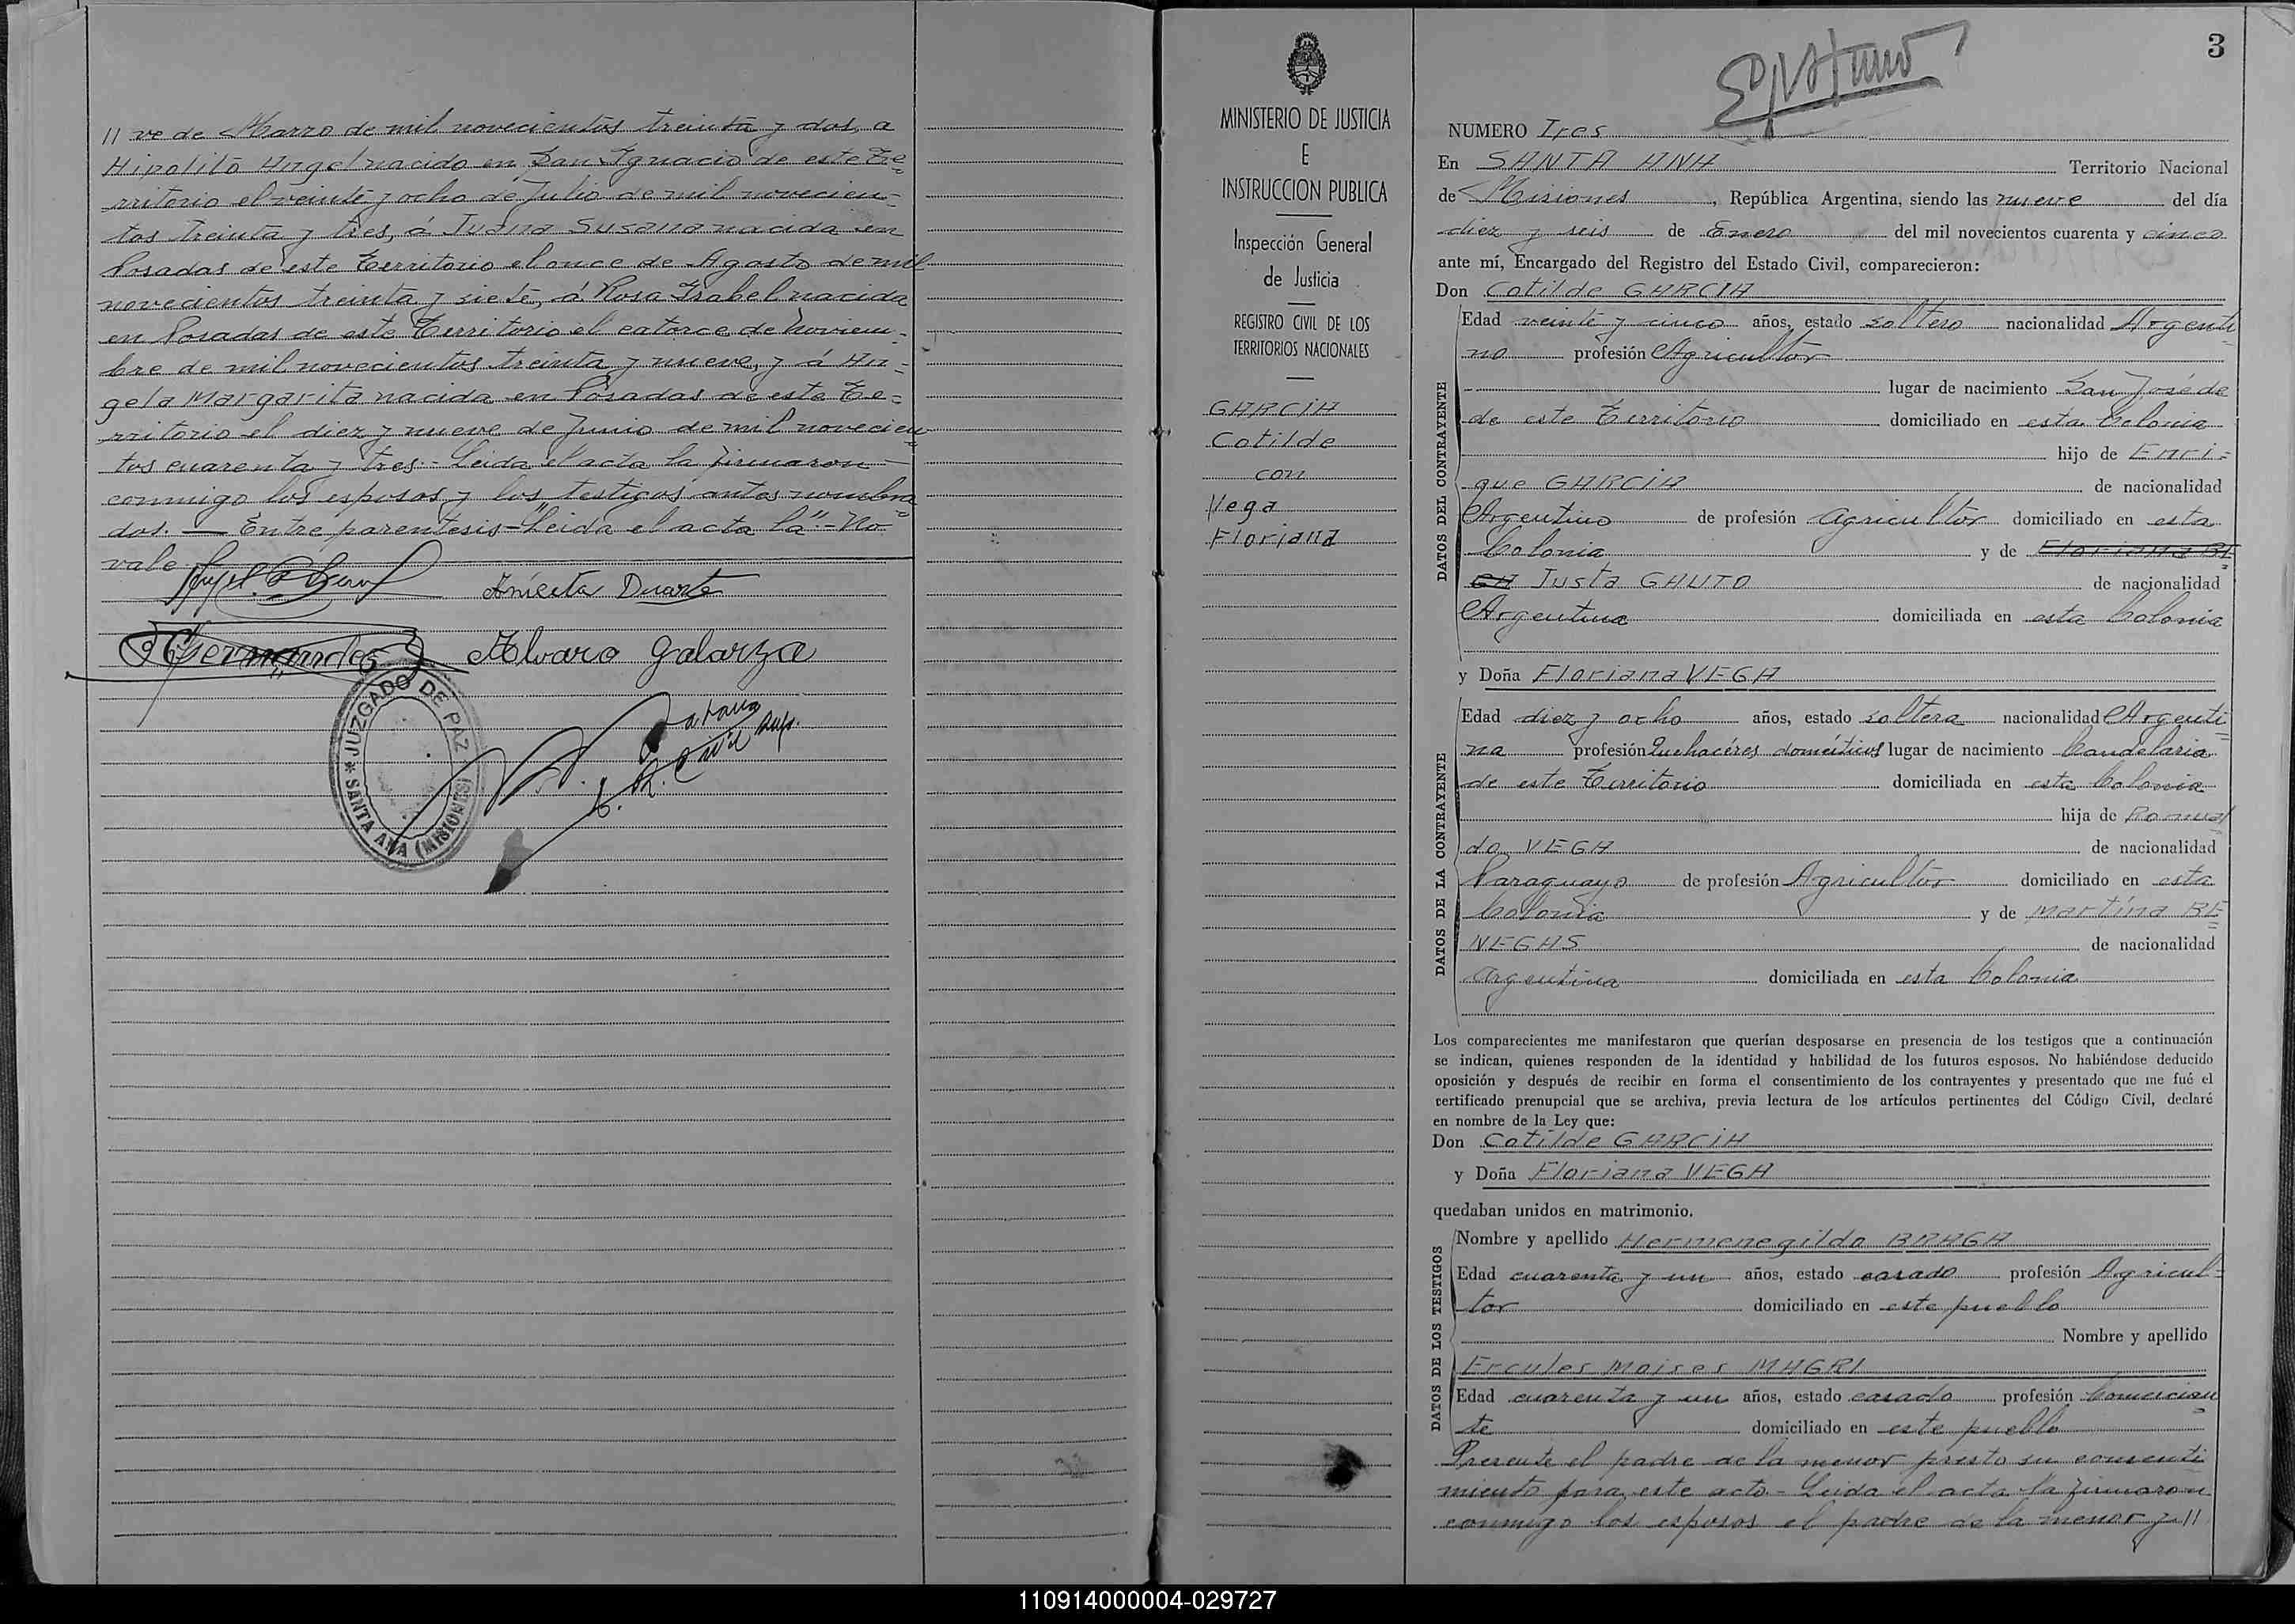 // ve de Marzo de mil novecientos treinta y dos, a
Hipolito Angel nacido en San Ignacio de este Te=
rritorio el veinte y ocho de Julio de mil novecien=
tos treinta y tres, á Juana Susana nacida en
Posadas de este Territorio el once de Agosto de mil
novecientos treinta y siete, á Rosa Isabel nacida
en Posadas de este Territorio el catorce de Noviem=
bre de mil novecientos treinta y nueve, y á An=
gela Margarita nacida en Posadas de este Te=
rritorio el diez y nueve de Junio de mil novecien
tos cuarenta y tres.- Leida el acta la firmaron
conmigo los esposos y los testigos antes nombra=
dos. — Entre parentesis-"Leida el acta la"-No
vale
Aniceta Duarte
Hernandez
Alvaro Galarza
* JUZGADO DE PAZ
SANTA ANA (MISIONES)
MINISTERIO DE JUSTICIA
E
INSTRUCCION PUBLICA
Inspección General
de Justicia
REGISTRO CIVIL DE LOS
TERRITORIOS NACIONALES
GARCIA
Cotilde
con
Vega
Floriana
3
NUMERO Tres
En SANTA ANA Territorio Nacional
de Misiones, República Argentina, siendo las nueve del día
diez y seis de Enero del mil novecientos cuarenta y cinco
ante mí, Encargado del Registro del Estado Civil, comparecieron:
Don Cotilde GARCIA
DATOS DEL CONTRAYENTE
Edad veinte y cinco años, estado soltero nacionalidad Argenti=
no profesión Agricultor
lugar de nacimiento San José de
de este Territorio domiciliado en esta Colonia
hijo de Enri=
que GARCIA de nacionalidad
Argentino de profesión Agricultor domiciliado en esta
Colonia y de Floriana
Justa GAUTO de nacionalidad
Argentina domiciliada en esta Colonia
y Doña Floriana VEGA
DATOS DE LA CONTRAYENTE
Edad diez y ocho años, estado soltera nacionalidad Argenti=
na profesión Quehacéres domésticos lugar de nacimiento Candelaria
de este Territorio domiciliada en esta Colonia
hija de Romual=
do VEGA de nacionalidad
Paraguayo de profesión Agricultor domiciliado en esta
Colonia y de Martína BE=
NEGAS de nacionalidad
argentina domiciliada en esta Colonia
Los comparecientes me manifestaron que querían desposarse en presencia de los testigos que a continuación
se indican, quienes responden de la identidad y habilidad de los futuros esposos. No habiéndose deducido
oposición y después de recibir en forma el consentimiento de los contrayentes y presentado que me fué el
certificado prenupcial que se archiva, previa lectura de los artículos pertinentes del Código Civil, declaré
en nombre de la Ley que:
Don Cotilde GARCIA
y Doña Floriana VEGA
quedaban unidos en matrimonio.
DATOS DE LOS TESTIGOS
Nombre y apellido Hermenegildo BRAGA
Edad cuarenta y un años, estado casado profesión Agricul=
tor domiciliado en este pueblo
Nombre y apellido
Ercules Moises MAGRI
Edad cuarenta y un años, estado casado profesión Comercian=
te domiciliado en este pueblo
Presente el padre de la menor presto su consenti=
miento para este acto.- Leida el acta la firmaron
conmigo los esposos el padre de la menor y //
110914000004-029727